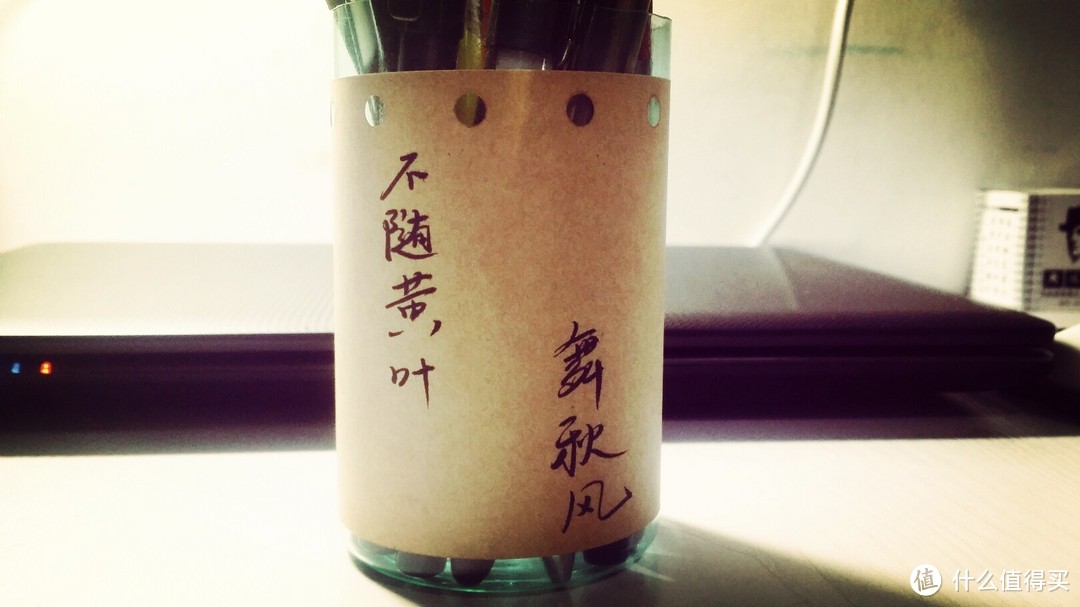 不随黄叶
舞秋风
值 什么值得买